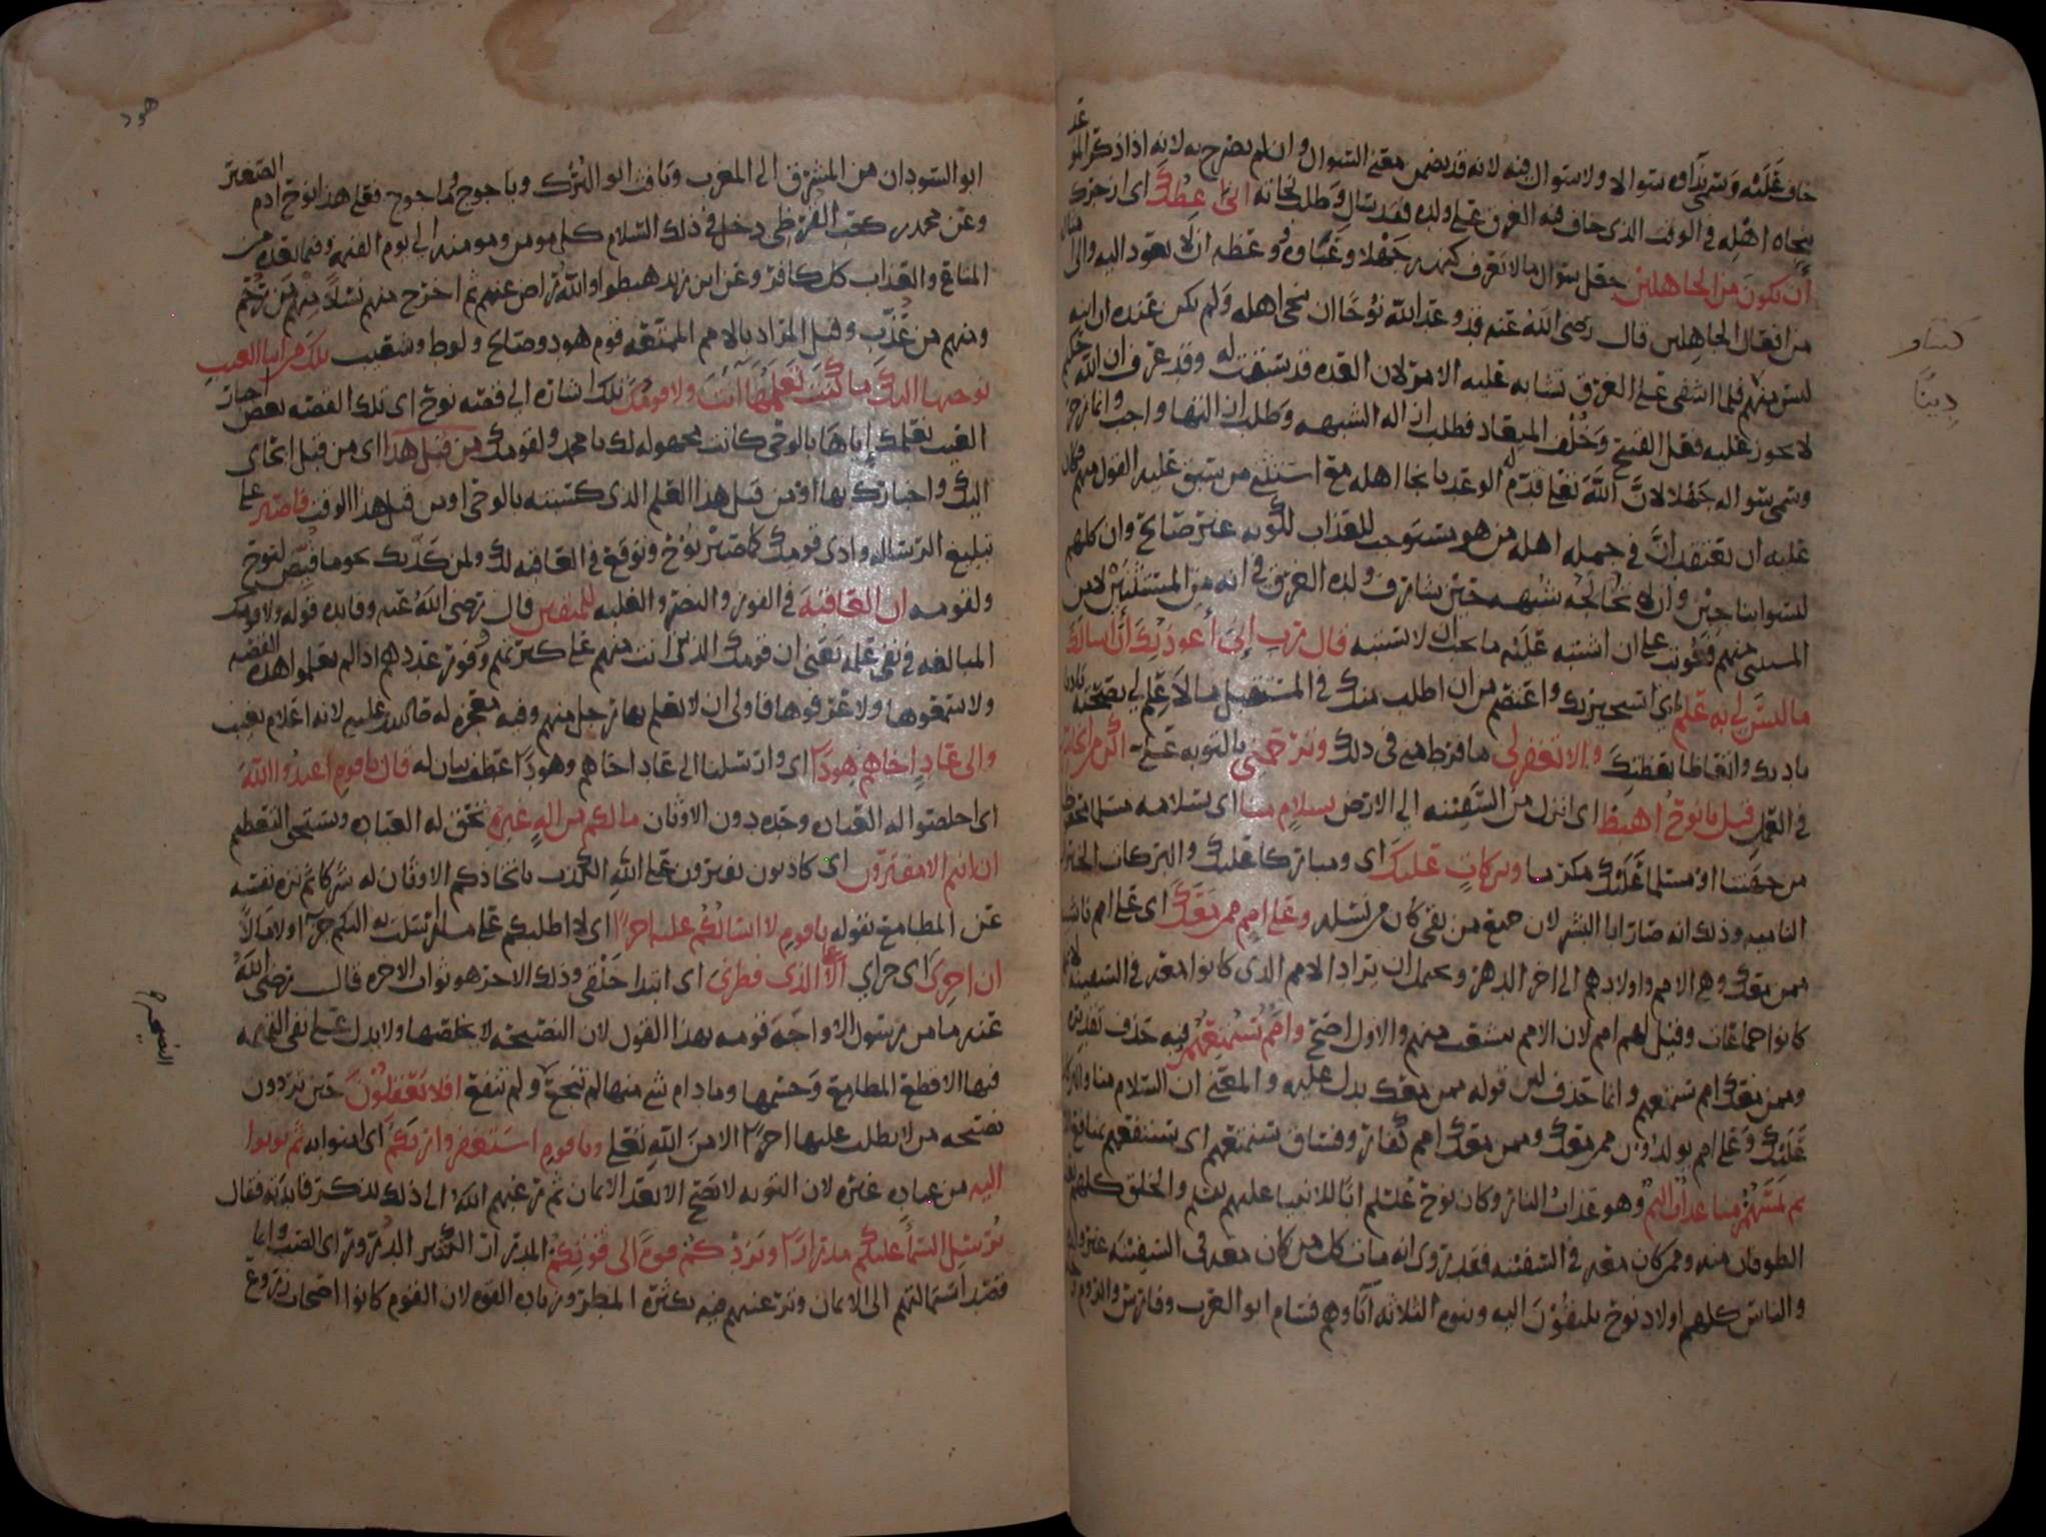 خاف عليه وسميَ نداوه سوالا ولا سوال فيه لانه قد تضمن معنى السوال وان لم يصرح به لانه اذا ذكر الموعد
بنجاه اهله في الوقت الذي خاف فيه الغرق على ولده فقد سال وطلب نجاته اني اعظك اي ازجرك
أن تكون من الجاهلين جعل سوال ما لا تعرف كنهه جهلا وغباوةً ووعظه ان لا يعود اليه والى امثاله
من افعال الجاهلين قال رضي الله عنه قد وعد الله نوحًا ان ينجي اهله ولم يكن عنده ان ابنه
ليس منهم فلما اشفى على الغرق تشابه عليه الامر لان العده قد سبقت له وقد عرف ان الله حكيم
لا يجوز عليه فعل القبيح وخُلْف الميعاد فطلب ازاله الشبهه وطلب ازالتها واجب وانما زجر
وسمى سواله جهلا لانَّ الله تعلى قدّم له الوعد بانجا اهله مع استثنى من سبق عليه القول منهم فكان
عليه ان يعتقد انَّ في جمله اهله من هو مستوجب للعذاب لكونه غير صالح وان كلهم
ليسوا بناجين وان لا تخالجه شبهه حين شارف ولده الغرق في انه من المستثنَيْن لا من
المستثنى منهم فعوتب على ان اشتبه عليه ما يجب ان لا يشتبه قال رب إني أعوذ بك أن أسالك
ما ليسَ لي به علم اي استجير بك واعتصم من ان اطلب منك في المستقبل ما لا علم لي بصحته تادبا
بادبك واتعاظا بموعظتك وإلا تغفر لي ما فرط مني في ذلك وترحمني بالتوبه علي اكن من الخاسرين
في العمل قيل يا نوح اهبط اي انزل من السفينه الى الارض بسلام منا اي بسلامه مسلما محفوظا
من جهتنا او مسلما عليك مكرما وبركاتٍ عليك اي ومباركا عليك والبركات الخيرات
الناميه وذلك انه صار ابا البشر لان جميع من بقي كان من نسله وعلى امم ممن معك اي على امم ناشيه
ممن معك وهي الامم واولادهم الى اخر الدهر ويحمل ان يراد الامم الذي كانوا معه في السفينه لانهم
كانوا جماعات وقيل لهم امم لان الامم تنشعب منهم والاول اصحّ وامم سنمتعهم فيه حذف تقديره
وممن معك امم سنمتعهم وانما حذف لان قوله ممن معك يدل عليه والمعنى ان السلام منا والبركات
عَليك وعلى امم يولدون ممن معك وممن معك امم كفار وفساق سنمتعهم اي سننفعهم بمنافع
ثم يمسهم منا عذاب اليم وهو عذاب النار وكان نوح عليلم ابًا للانبيا عليهم بعده والخلق كلهم بعد
الطوفان منه وممن كان معه في السفينه فقد روي انه مات كل من كان معه في السفينه غير ولده
والناس كلهم اولاد نوح ينتهون اليه وبنوه الثلاثه اباوهم فسام ابو العرب وفارس والروم
هود
ابو السودان من المشرق الى المغرب ويافث ابو الترك وياجوج وماجوج فعلى هذا نوح ادم الصغير
وعن محمد بن كعب القرظي دخل في ذلك السلام كل مومن ومومنه الى يوم القيمه وفيما بعده من
المتاع والعذاب كل كافر وعن ابن زيد هبطوا والله راض عنهم ثم اخرج منهم نسلاً منهم من رُحم
ومنهم من عُذّب وقيل المراد بالامم الممتعه قوم هود وصالح ولوط وشعيب تلك من انبا الغيب
نوحيها اليك ما كنت تعلمها أنت ولا قومك تلك اشاره الى قصه نوح اي تلك القصه بعض اخبار
الغيب نعلمك اياها بالوحي كانت مجهوله لك يا محمد ولقومك من قبل هذا اي من قبل ايحاي
اليك واخبارك بها او من قبل هذا العلم الذي كسبته بالوحي او من قبل هذا الوقت فاصبر على
تبليغ الرساله واذى قومك كما صبر نوح وتوقع في العاقبه لك ولمن كذبك نحو ما قُيّض لنوح
ولقومه ان العاقبة في الفوز والنصر والغلبه للمتقين قال رضي الله عنه وفايده قوله ولا قومك
المبالغه في نفي علمه يعني ان قومك الذين انت منهم على كثرتهم ووفور عددهم اذا لم يعلموا هذه القصه
ولا سمعوها ولا عرفوها فاولى ان لا يعلم بها رجل منهم وفيه معجزه له صلى الله عليه لانه اعلام بغيب
والى عادٍ اخاهم هودًا اي وارسلنا الى عاد اخاهم وهودًا عطف بيان له قال يا قومِ اعبدُوا اللهَ
اي اخلصوا له العباده وحده دون الاوثان ما لكم من اله غيره تحق له العباده ويستحق التعظيم
ان انتم الا مفترون اي كاذبون تفترون على الله الكذب باتخاذكم الاوثان له شركا ثم نزه نفسه
عن المطامع بقوله يا قومِ لا اسالكم عليه اجرًا اي لا اطلبكم على ما ارسلت به اليكم جزآ ولا مالاً
ان اجريَ اي جزاي إلا على الذي فطرني اي ابتدا خَلْقي وذلك الاجر هو ثواب الاخره قال رضي الله
عنه ما من رسول الا واجَه قومه بهذا القول لان النصيحه لا يخلصها ولا يدل على نفي التهمه
فيها الا قطع المطامع وحسمها وما دام شي منها لم تنجح ولم تنفع افلا تعقلون حين تردون
نصيحه من لا يطلب عليها اجرًا الا من الله تعلى ويا قوم استغفروا ربكم اي امنوا به ثم توبوا
اليه من عباده غيره لان التوبه لا تصح الا بعد الايمان ثم رغبهم الله الى ذلك بذكر فايدته فقال
يُرسل السمآ عليكم مدرارًا ويزدكم قوةً الى قوتكم المدرار الكثير الدرور اي الصب وانما
قصد استمالتهم الى الايمان وترغيبهم فيه بكثره المطر وزياده القوه لان القوم كانوا اصحاب زروع
النصيحة